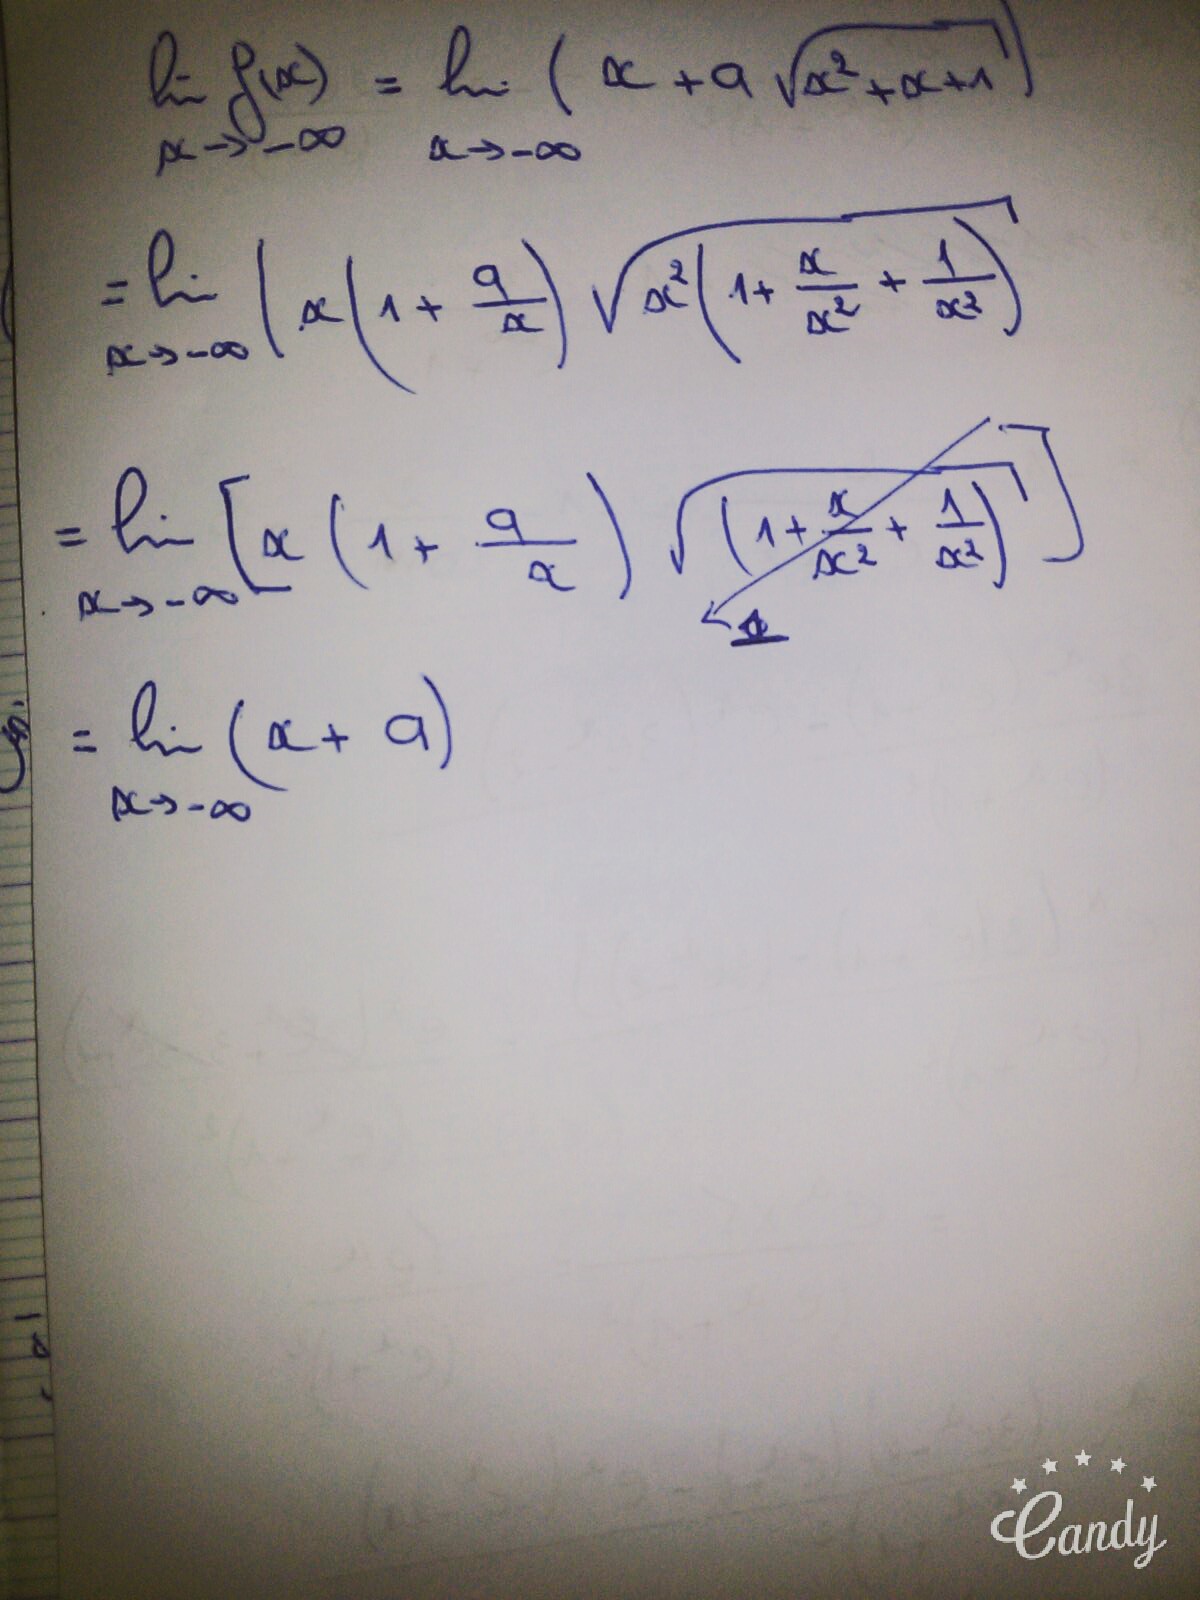 lim f(x) = lim ( x + a √(x² + x + 1) )
x → -∞ x → -∞
= lim ( x ( 1 + a/x ) √(x² ( 1 + x/x² + 1/x² ) )
x → -∞
= lim [ x ( 1 + a/x ) √( 1 + x/x² + 1/x² ) ]
x → -∞
1
= lim ( x + a )
x → -∞
Candy